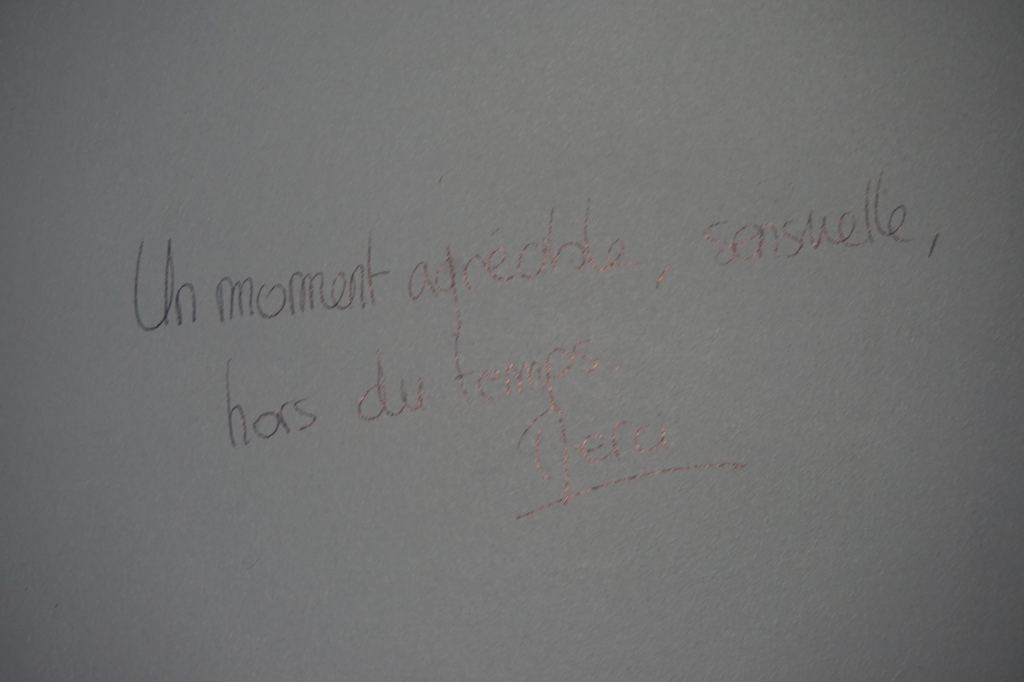 Un moment agréable, sensuelle,
hors du temps.
Merci